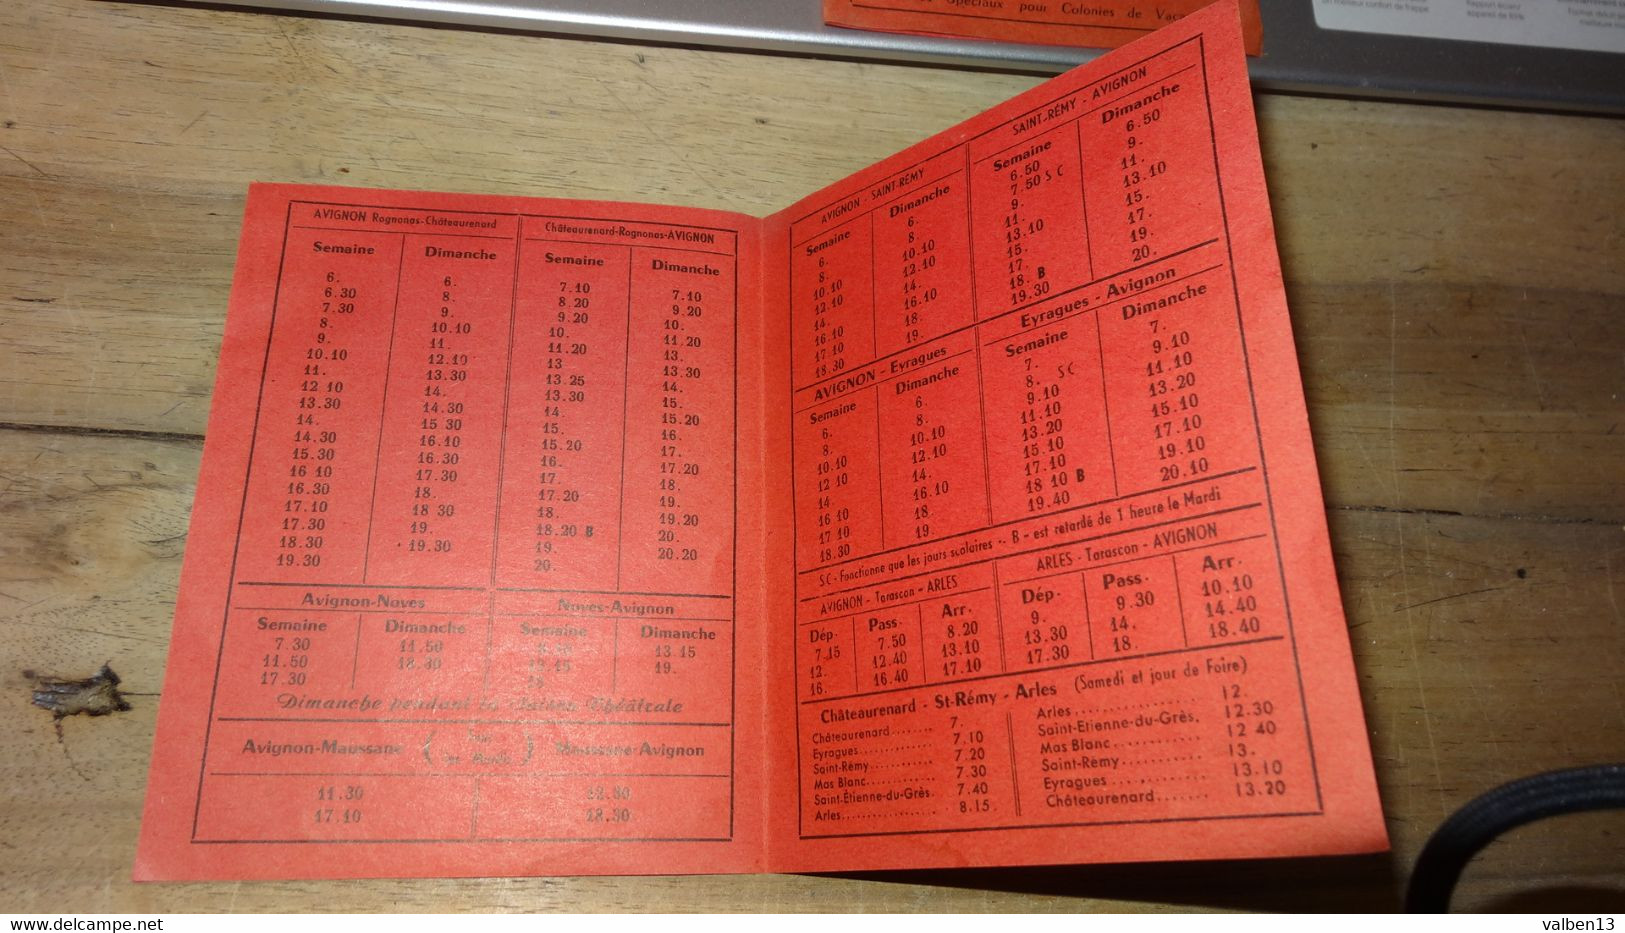 Spéciaux pour Colonies de Vac
un meilleur confort de frappe
Rapport écran/
appareil de 85%
AVIGNON Rognonas-Châteaurenard
Semaine Dimanche
6. 6.
6.30 8.
7.30 9.
8. 10.10
9. 11.
10.10 12.10
11. 13.30
12 10 14.
13.30 14.30
14. 15 30
14.30 16.10
15.30 16.30
16 10 17.30
16.30 18.
17.10 18 30
17.30 19.
18.30 19.30
19.30
Châteaurenard-Rognonas-AVIGNON
Semaine Dimanche
7.10 7.10
8.20 9.20
9.20 10.
10. 11.20
11.20 13.
13 13.30
13.25 14.
13.30 15.
14. 15.20
15. 16.
15.20 17.
16. 17.20
17. 18.
17.20 19.
18. 19.20
18.20 B 20.
19. 20.20
20.
Avignon-Noves
Semaine Dimanche
7.30 11.50
11.50 18.30
17.30
Noves-Avignon
Semaine Dimanche
13.15
19.
Dimanche pendant la Saison Théâtrale
Avignon-Maussane Maussane-Avignon
11.30 12.30
17.10 18.30
AVIGNON - SAINT-RÉMY
Semaine Dimanche
6. 6.
8. 8.
10.10 10.10
12.10 12.10
14. 14.
16.10 16.10
17.10 18.
18.30 19.
SAINT-RÉMY - AVIGNON
Semaine Dimanche
6.50 6.50
7.50 S C 9.
9. 11.
11. 13.10
13.10 15.
15. 17.
17. 19.
18. B 20.
19.30
AVIGNON - Eyragues
Semaine Dimanche
6. 6.
8. 8.
10.10 10.10
12 10 12.10
14. 14.
16 10 16.10
17 10 18.
18.30 19.
Eyragues - Avignon
Semaine Dimanche
7. 7.
8. S C 9.10
9.10 11.10
11.10 13.20
13.20 15.10
15.10 17.10
17.10 19.10
18 10 B 20.10
19.40
S.C - Fonctionne que les jours scolaires -. B - est retardé de 1 heure le Mardi
AVIGNON - Tarascon - ARLES
Dép. Pass. Arr.
7.15 7.50 8.20
12. 12.40 13.10
16. 16.40 17.10
ARLES - Tarascon - AVIGNON
Dép. Pass. Arr.
9. 9.30 10.10
13.30 14. 14.40
17.30 18. 18.40
Châteaurenard - St-Rémy - Arles (Samedi et jour de Foire)
Châteaurenard........ 7.
Eyragues.............. 7.10
Saint-Rémy............ 7.20
Mas Blanc............. 7.30
Saint-Étienne-du-Grès. 7.40
Arles................. 8.15.
Arles................. 12.
Saint-Etienne-du-Grès. 12.30
Mas Blanc............. 12 40
Saint-Rémy............ 13.
Eyragues.............. 13.10
Châteaurenard........ 13.20
delcampe.net
valben13